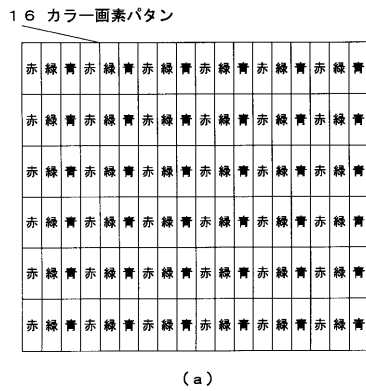 16 カラー画素パタン
赤 緑 青 赤 緑 青 赤 緑 青 赤 緑 青 赤 緑 青 赤 緑 青
赤 緑 青 赤 緑 青 赤 緑 青 赤 緑 青 赤 緑 青 赤 緑 青
赤 緑 青 赤 緑 青 赤 緑 青 赤 緑 青 赤 緑 青 赤 緑 青
赤 緑 青 赤 緑 青 赤 緑 青 赤 緑 青 赤 緑 青 赤 緑 青
赤 緑 青 赤 緑 青 赤 緑 青 赤 緑 青 赤 緑 青 赤 緑 青
赤 緑 青 赤 緑 青 赤 緑 青 赤 緑 青 赤 緑 青 赤 緑 青
(a)